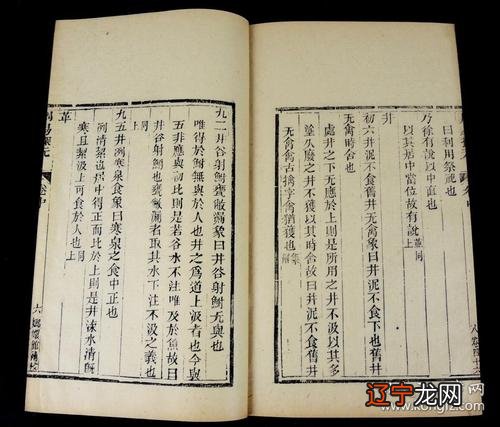 曰利用祭祀也
乃徐有說以中直也
以其居中當位故有說上並同
井
初六井泥不食舊井无禽象曰井泥不食下也舊井
无禽時舍也
處井之下无應於上則是所用之井不汲以其多
塗久廢之井不獲以其時舍故曰井泥不食舊井
无禽禽古擒字禽猶獲也集解
九二井谷射鮒甕敝漏象曰井谷射鮒无與也
唯得於鮒無與於人也井之爲道上汲者也今與
五非應與初比則是若谷水不注唯及於魚故曰
井谷射鮒也甕敝漏者取其水下注不汲之義也
同上
九五井洌寒泉食象曰寒泉之食中正也
洌清絜也居中得正而比於上則是井渫水清既
寒且絜汲上可食於人也同上
革
周易探元 卷中 六 嫏嬛館補校
辽宁龙网